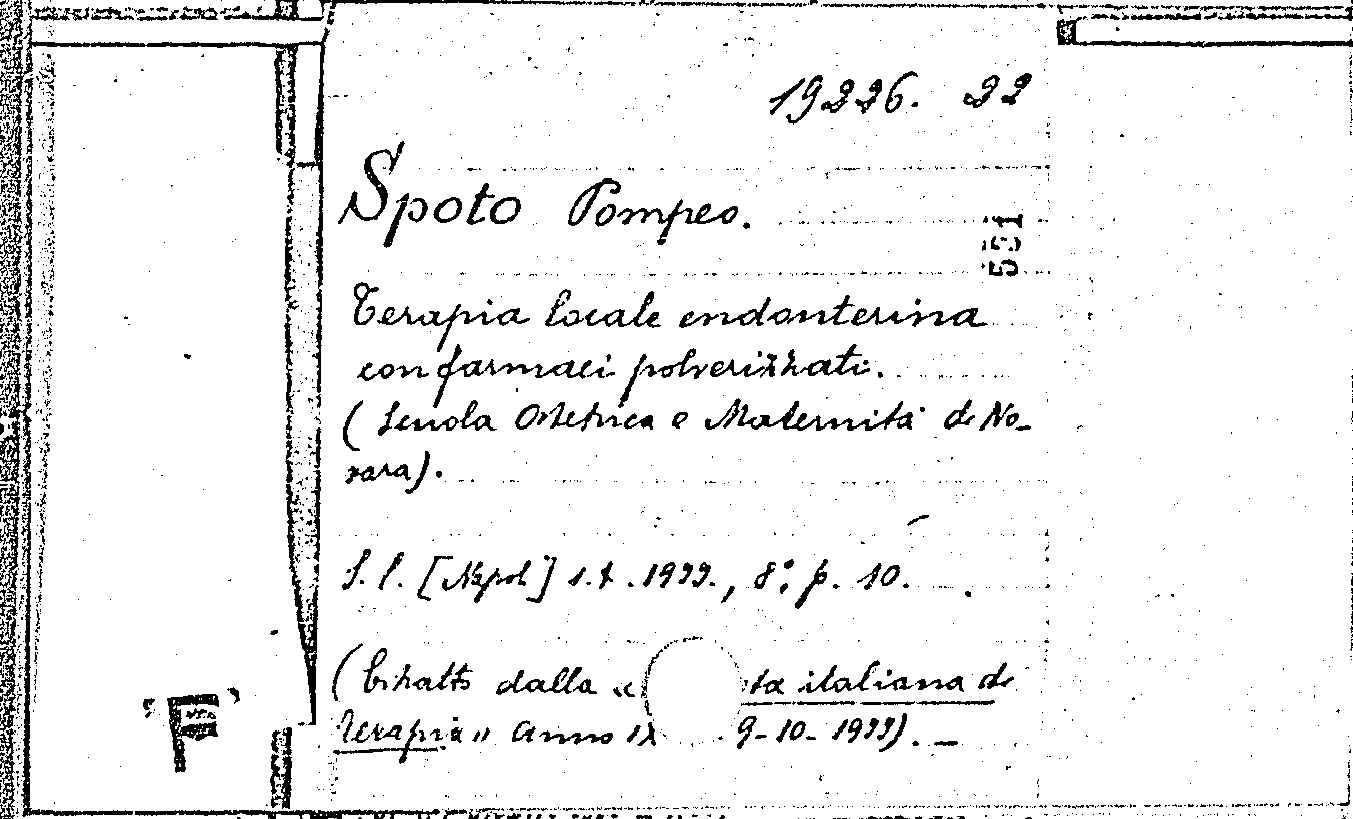 19226. 22
Spoto Pompeo.
531
Terapia locale endouterina
con farmaci polverizzati.
(Scuola Ostetrica e Maternità di No-
vara).
S. l. [Napoli] s. t. 1933., 8°, p. 10.
(Estratto dalla « ta italiana di
Terapia » anno IX 9-10-1933). —
"F"